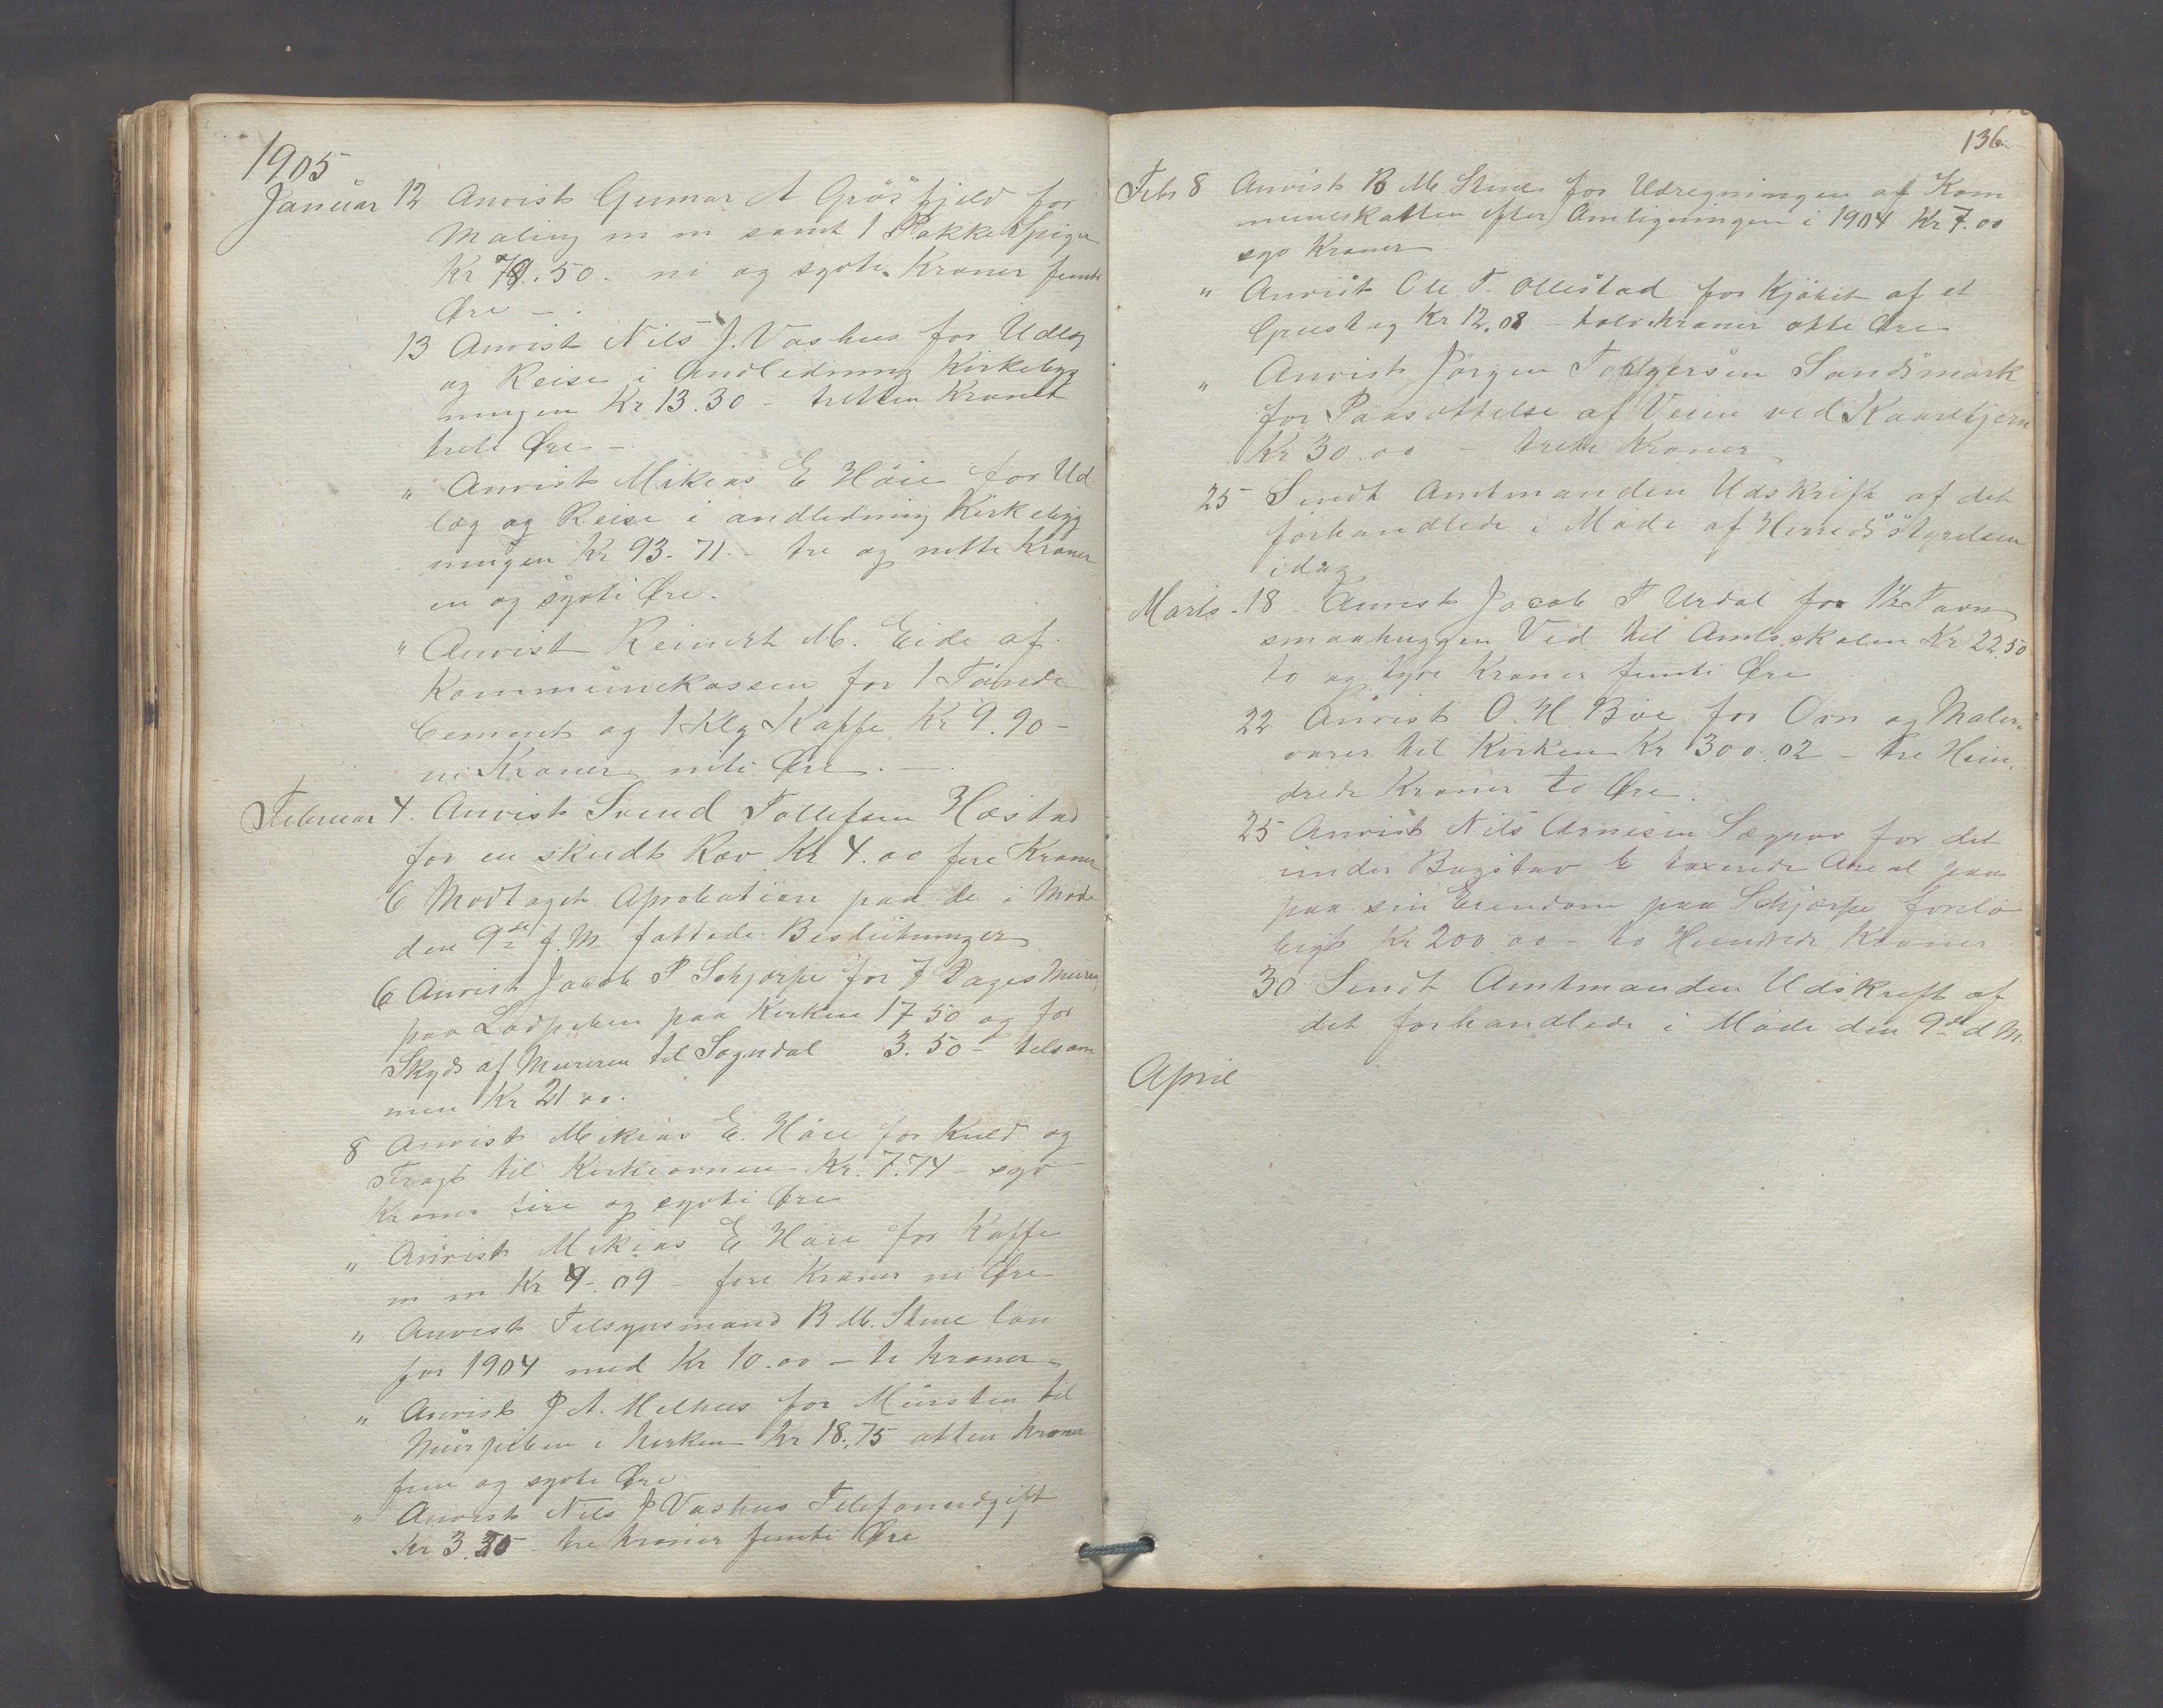 1905
Januar 12 Anvist Gunnar A Grösfjeld for
Maling m m samt 1 Pakke Spiger
Kr 79.50 - ni og sytti Kroner femti
Øre -
13 Anvist Nils J. Vashus for Udlæg
og Reise i andledning Kirkebyg
ningen Kr 13.30 - tretten Kroner
treti Øre -
" Anvist Mikias E Höie for Ud-
læg og Reise i andledning Kirkebyg
ningen Kr 93.71 - tre og nitti Kroner
en og sytti Øre.
" Anvist Reinert M. Eide af
Kommunekassen for 1 Tönde
Cement og 1 Klg Kaffe Kr 9.90 -
ni Kroner niti Øre. -
Februar 4. Anvist Svend Tollefsen Hæstad
for en skudt Ræv Kr 4.00 fire Kroner
6 Modtaget Aprobation paa de i Möde
den 9de f. M. fattede Beslutninger
6 Anvist Jacob P. Schjærpe for 7 Dages Muren
paa Ladpiben paa Kirken 17 50 og for
Skyds af Mureren til Sogndal 3.50 - tilsam
men Kr 21 00.
8 Anvist Mikias E. Höie for Kuld og
Fragt til Kirkeovnen Kr. 7.74 - syv
Kroner fire og sytti Øre
" Anvist Mikias E Höie for Kaffe
m m Kr 4.09 - fire Kroner ni Øre
" Anvist Tilsynsmand B M. Stene lön
for 1904 med Kr 10.00 - ti kroner -
" Anvist J A. Melhus for Mursten til
Murpiben i kirken Kr 18.75 atten kroner
fem og sytti Øre
" Anvist Nils J Vashus Telefonudgift
Kr 3.50 tre kroner femti Øre
136
Febr 8 Anvist B M. Stene for Udregningen af Kom
muneskatten efter Amligningen i 1904 Kr 7.00
syv Kroner
" Anvist Ole T. Ollestad for Kjöbet af et
Grustag Kr 12.08 - tolv kroner otte Øre
" Anvist Jörgen Torgersen Sandsmark
for Paasættelse af Veien ved Kaarebjern
Kr 30.00 - treti Kroner
25 Sendt Amtmanden Udskrift af det
forhandlede i Möde af Herredsstyrelsen
idag
Marts - 18 Anvist Jacob T Urdal for 1½ Favn
smaahuggen Ved til Amtsskolen Kr 22.50
to og tyve Kroner femti Øre
22 Anvist O. H. Böe for Ovn og Maler-
varer til Kirken Kr 300.02 - tre Hun-
drede Kroner to Øre.
25 Anvist Nils Arnesen Særvov for det
under Bogstav E taxerede Areal paa
paa sin Eiendom paa Schjærpe forelö
bigt Kr 200.00 - to Hundrede Kroner
30 Sendt Amtmanden Udskrift af
det forhandlede i Möde den 9de d M.
April